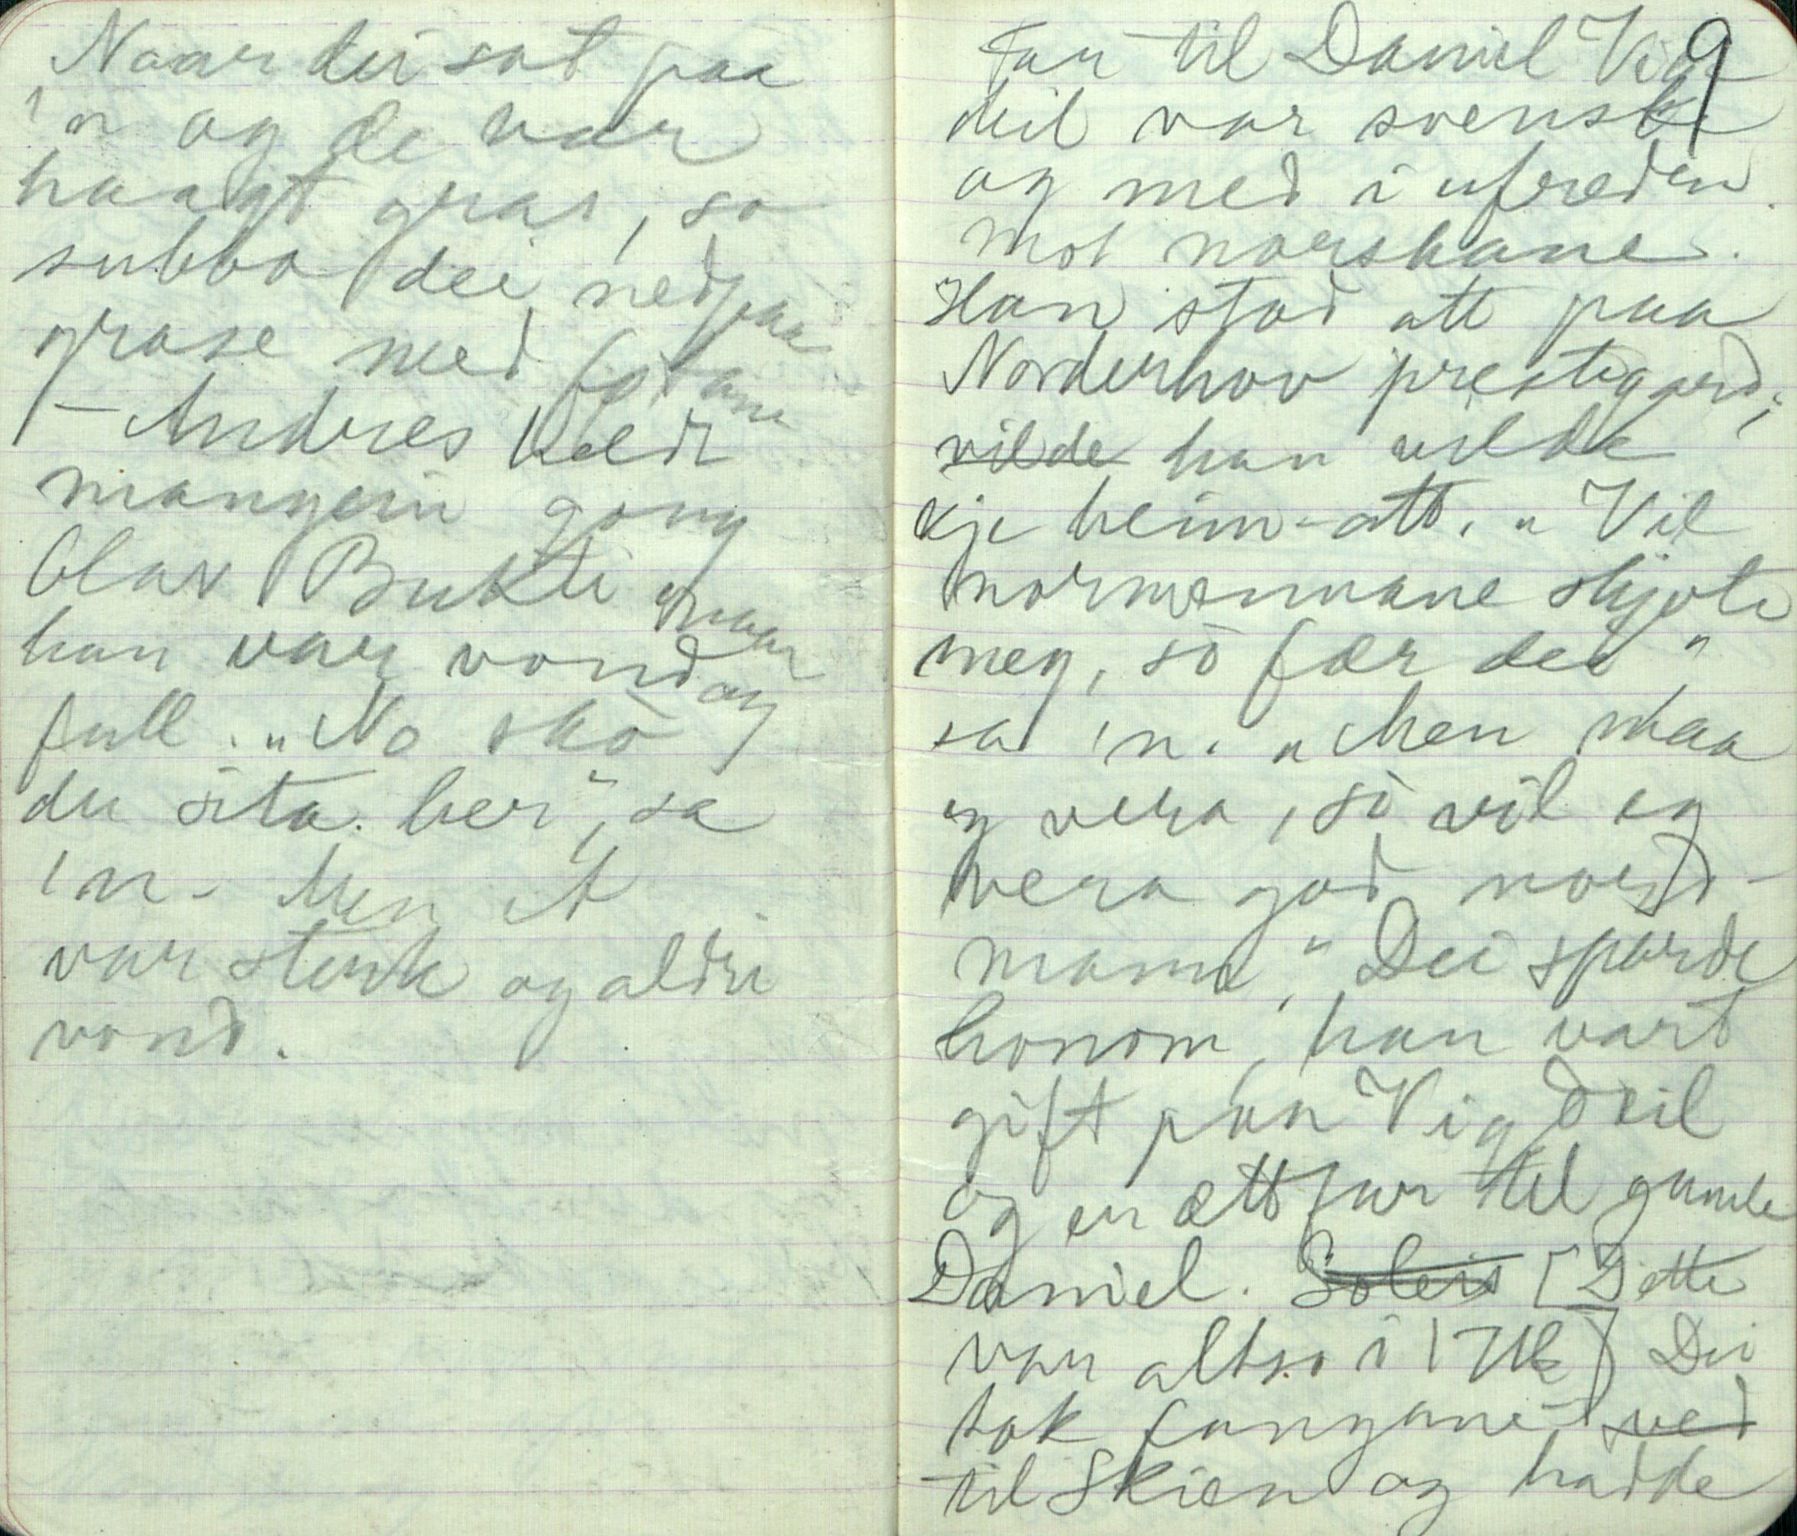 Naar dei sat paa
'n og de var
haagt gras, so
subba dei ned paa
grase med føtane
- Andres heldt
mangein gong
Olav Bukti naar
han var vond og
full. "No skò
du sita her", sa
'n - Men A
var sterk og aldri
vond.
9
Far til Daniel Vig
deil var svensk
og med i ufreden
mot norskane.
Han stod att paa
Norderhov prestegard;
vilde han vilde
kje heim-att. "Vil
normennane skjota
meg, sò fær dei",
sa 'n. "Men maa
eg vera, sò vil eg
vera god nord-
mann." Dei sparde
honom, han vart
gift paa Vigdeil
og er ættfar til gamle
Daniel. [Dette
var altso i 1716] Dei
tok fangane ved
til Skien og hadde